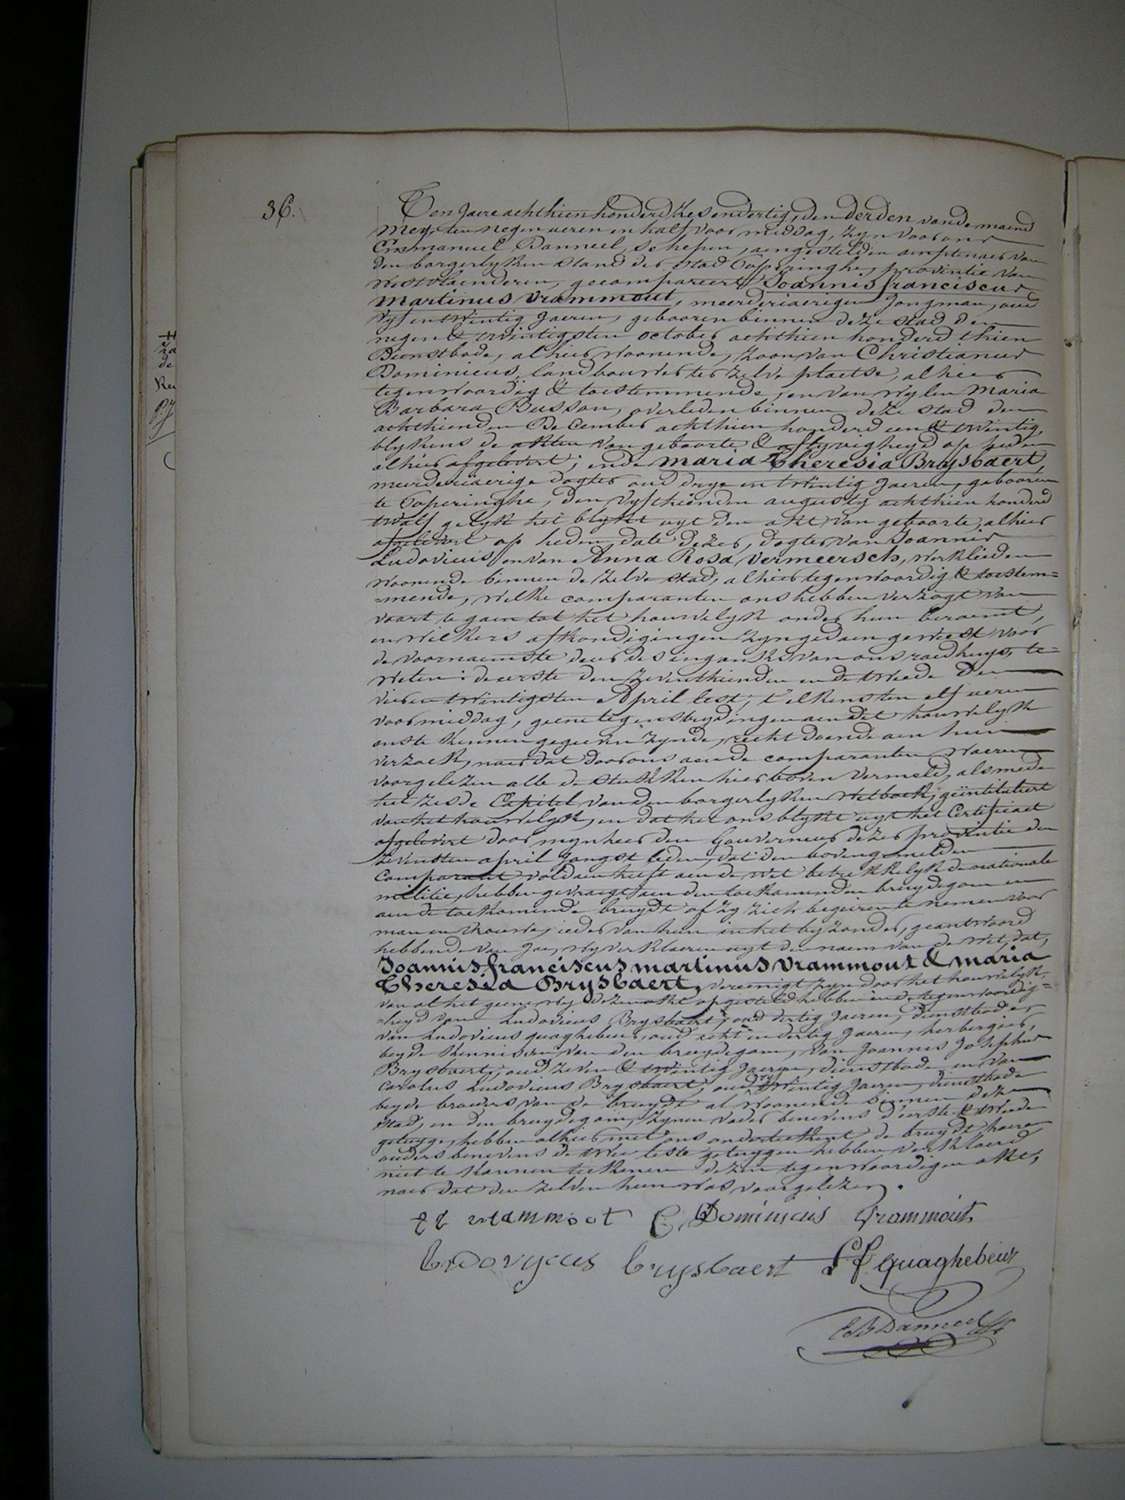 36.
Ten Jaere achthien honderd zesendertig, den derden van de maend
Mey, ten negen ueren en half voormiddag, zyn voor ons
Emmanuel Danneel, schepen, aengestelden amptenaer van
den borgerlyken stand der stad Poperinghe, provintie van
Westvlaenderen, gecompareert Joannis franciscus
Martinus Vrammout, meerderjaerigen Jongman, oud
vyf en twintig Jaeren, gebooren binnen deze stad den
negen & twintigsten october achthien honderd thien
Dienstbode, alhier woonende, zoon van Christianus
Dominicus, landbouwer ter zelve plaetse, alhier
tegenwoordig & toestemmende, en van wylen Maria
Barbara Busson, overleden binnen deze stad den
achthienden December achthien honderd een & twintig,
blykens de akten van geboorte & aflyvigheyd op heden
alhier afgelevert; ende Maria Theresia Brysbaert,
meerderjaerige dogter oud drye en twintig Jaeren, gebooren
te Poperinghe, den vyfthienden augusty achthien honderd
twalf gelyk het blykt uyt den akt van geboorte, alhier
afgelevert op heden date dezer, dogter van Joannis
Ludovicus, en van Anna Rosa Vermeersch, werklieden
woonende binnen de zelve stad, alhier tegenwoordig & toestem-
-mende, welke comparanten ons hebben verzogt van
voort te gaen tot het houwelyk onder hun beraemt,
en welkers afkondigingen zyn gedaen geweest voor
de voornaemste deur des ingankx van ons raedhuys, te-
weten: de eerste den zeventhienden en de tweede den
vier en twintigsten April lest, t'elkens ten elf ueren
voormiddag, geene tegenstrydingen aen dit houwelyk
ons te kennen gegeven zynde, recht doende aen hun
verzoek, naer dat door ons aen de comparanten waeren
voorgelezen alle de stukken hier boven vermeld, als mede
het zesde Capitel van den borgerlyken wetboek, geïntitulert
van het houwelyk, en dat het ons blykt uyt het Certificaet
afgelevert door mynheer den Gouverneur dezer provintie den
zevensten april jongst leden, dat den bovengemelden
Comparant voldaen heeft aen de wet betrekkelyk de nationale
militie, hebben gevraegt aen den toekomenden bruydegom en
aen de toekomende bruydt of zy zich begeiren te nemen voor
man en vrouwe, ieder van hun in het byzonder, geantwoord
hebbende van Jae, wy verklaeren uyt den naem van de wet, dat,
Joannis franciscus martinus Vrammout & maria
Theresia Brysbaert, vereenigt zyn door het houwelyk,
van al het geene wy dezen akt opgesteld hebben in de tegenwoordig-
-heyd van Ludovicus Brysbaert, oud dertig Jaeren, dienstbode,
van Ludovicus quaghebeur, oud acht en dertig Jaeren, herbergier,
beyde kennissen van den bruydegom, van Joannis Josephus
Brysbaert, oud zeven & twintig Jaeren, dienstbode en van
Carolus Ludovicus Brysbaert, oud twintig Jaeren, dienstbode
beyde broeders van de bruydt al woonende binnen deze
stad, en den bruydegom, zynen vader benevens d'eerste & tweede
getuyge, hebben alhier met ons onderteekent, de bruydt haere
ouders benevens de twee leste getuygen hebben verklaerd
niet te konnen teekenen dezen tegenwoordigen akt,
naer dat den zelven hun was voorgelezen.
Vrammout C. Dominicus Vrammout
Lvdovycus brysbaert LF quaghebeur
E B Danneel